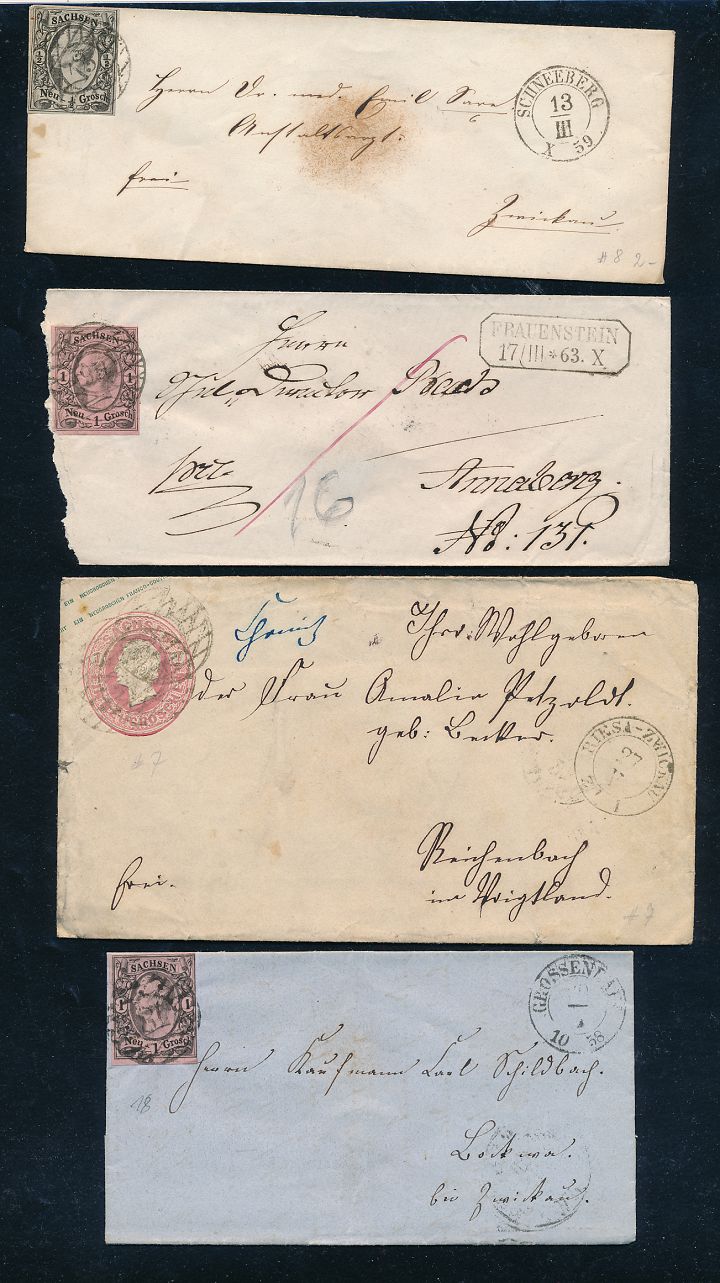 SACHSEN
½ ½
Neu - ½ Grosch
SCHNEEBERG
13
III
X 59
Herrn Dr. med. Emil
frei
Zwickau.
#8 2-
SACHSEN
1 1
Neu - 1 Grosch
FRAUENSTEIN
17/III * 63. X
Herrn
Director
Annaberg.
No: 131.
16
EIN NEUGROSCHEN
EIN NEUGROSCHEN FRANCO-COUV
Chemnitz
Ihro. Wohlgeboren
der Frau Amalie Petzoldt.
geb: Becker.
RIESA-ZWICKAU
27
#7
Reichenbach
im Voigtland.
frei.
#7
SACHSEN
1 1
Neu - 1 Grosch
GROSSENHAIN
10 58
Herrn Kaufmann Carl Schildbach.
18
Bockwa.
bei Zwickau.